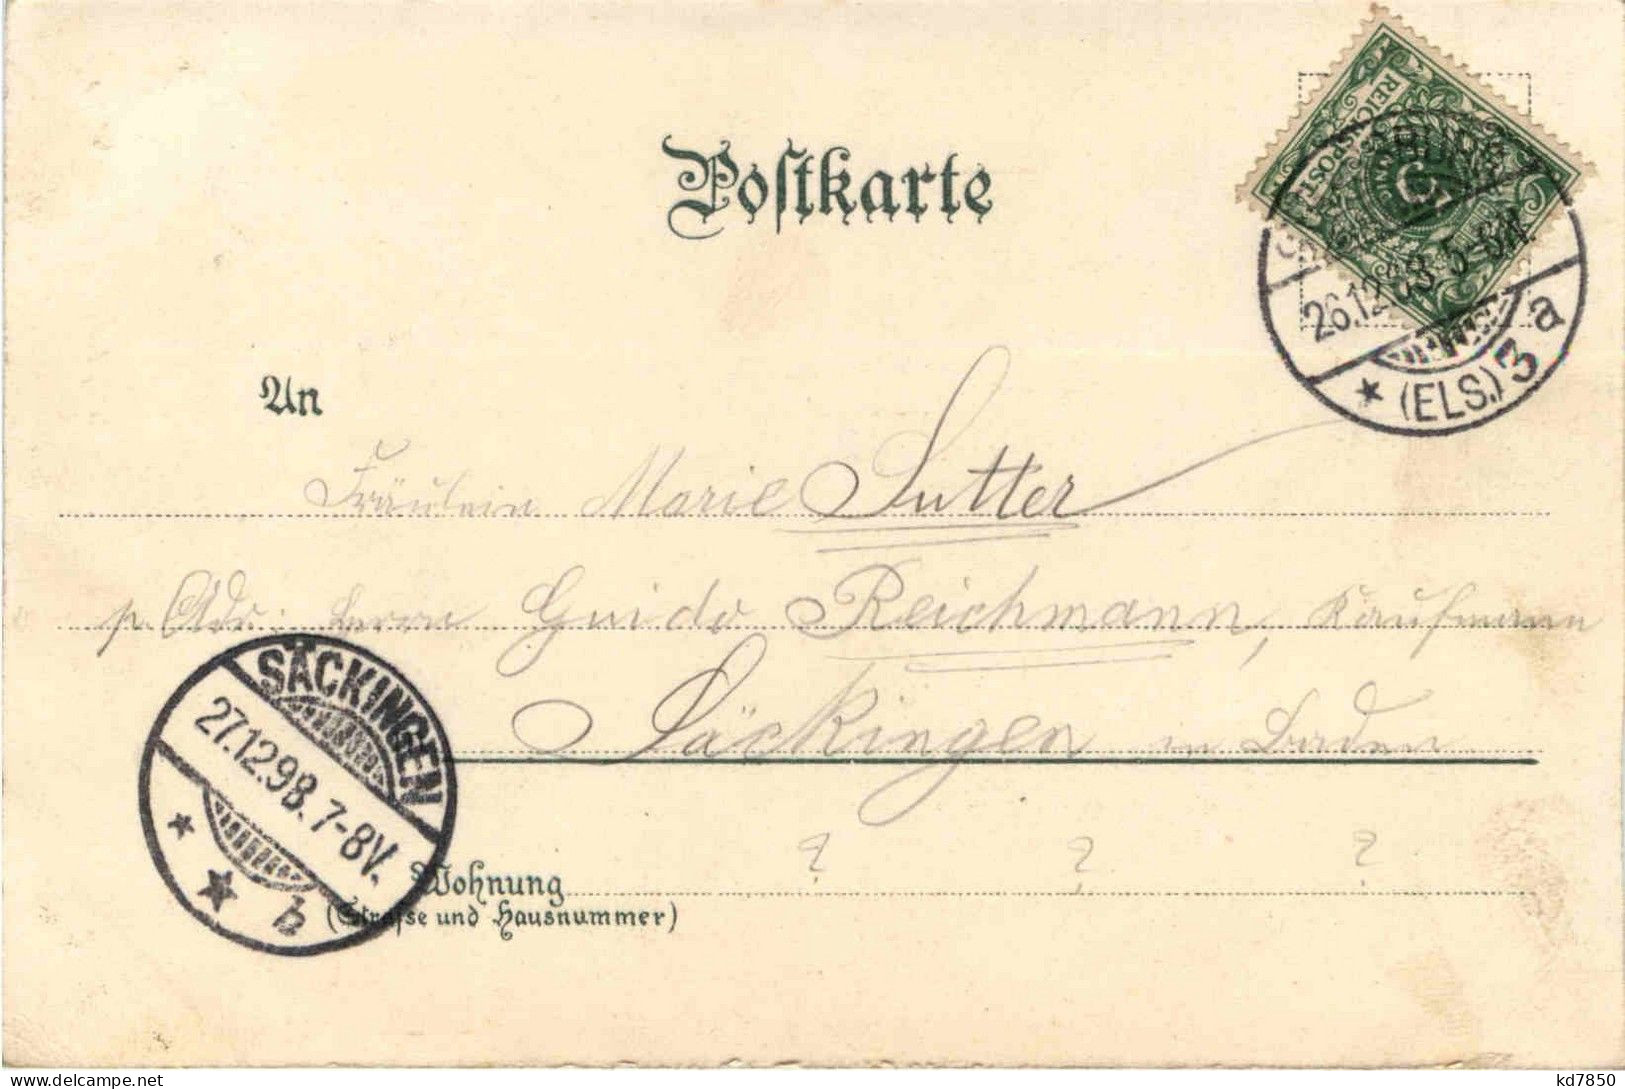 Postkarte
REICHSPOST
5
26.12.98. 5-6N.
* (ELS.) 3 a
An
Fräulein Marie Sutter
p. Adr: Herrn Guido Reichmann, Kaufmann
Säckingen in Baden
SÄCKINGEN
27.12.98. 7-8V.
* * b
? ? ?
Wohnung
(Strasse und Hausnummer)
kd7850